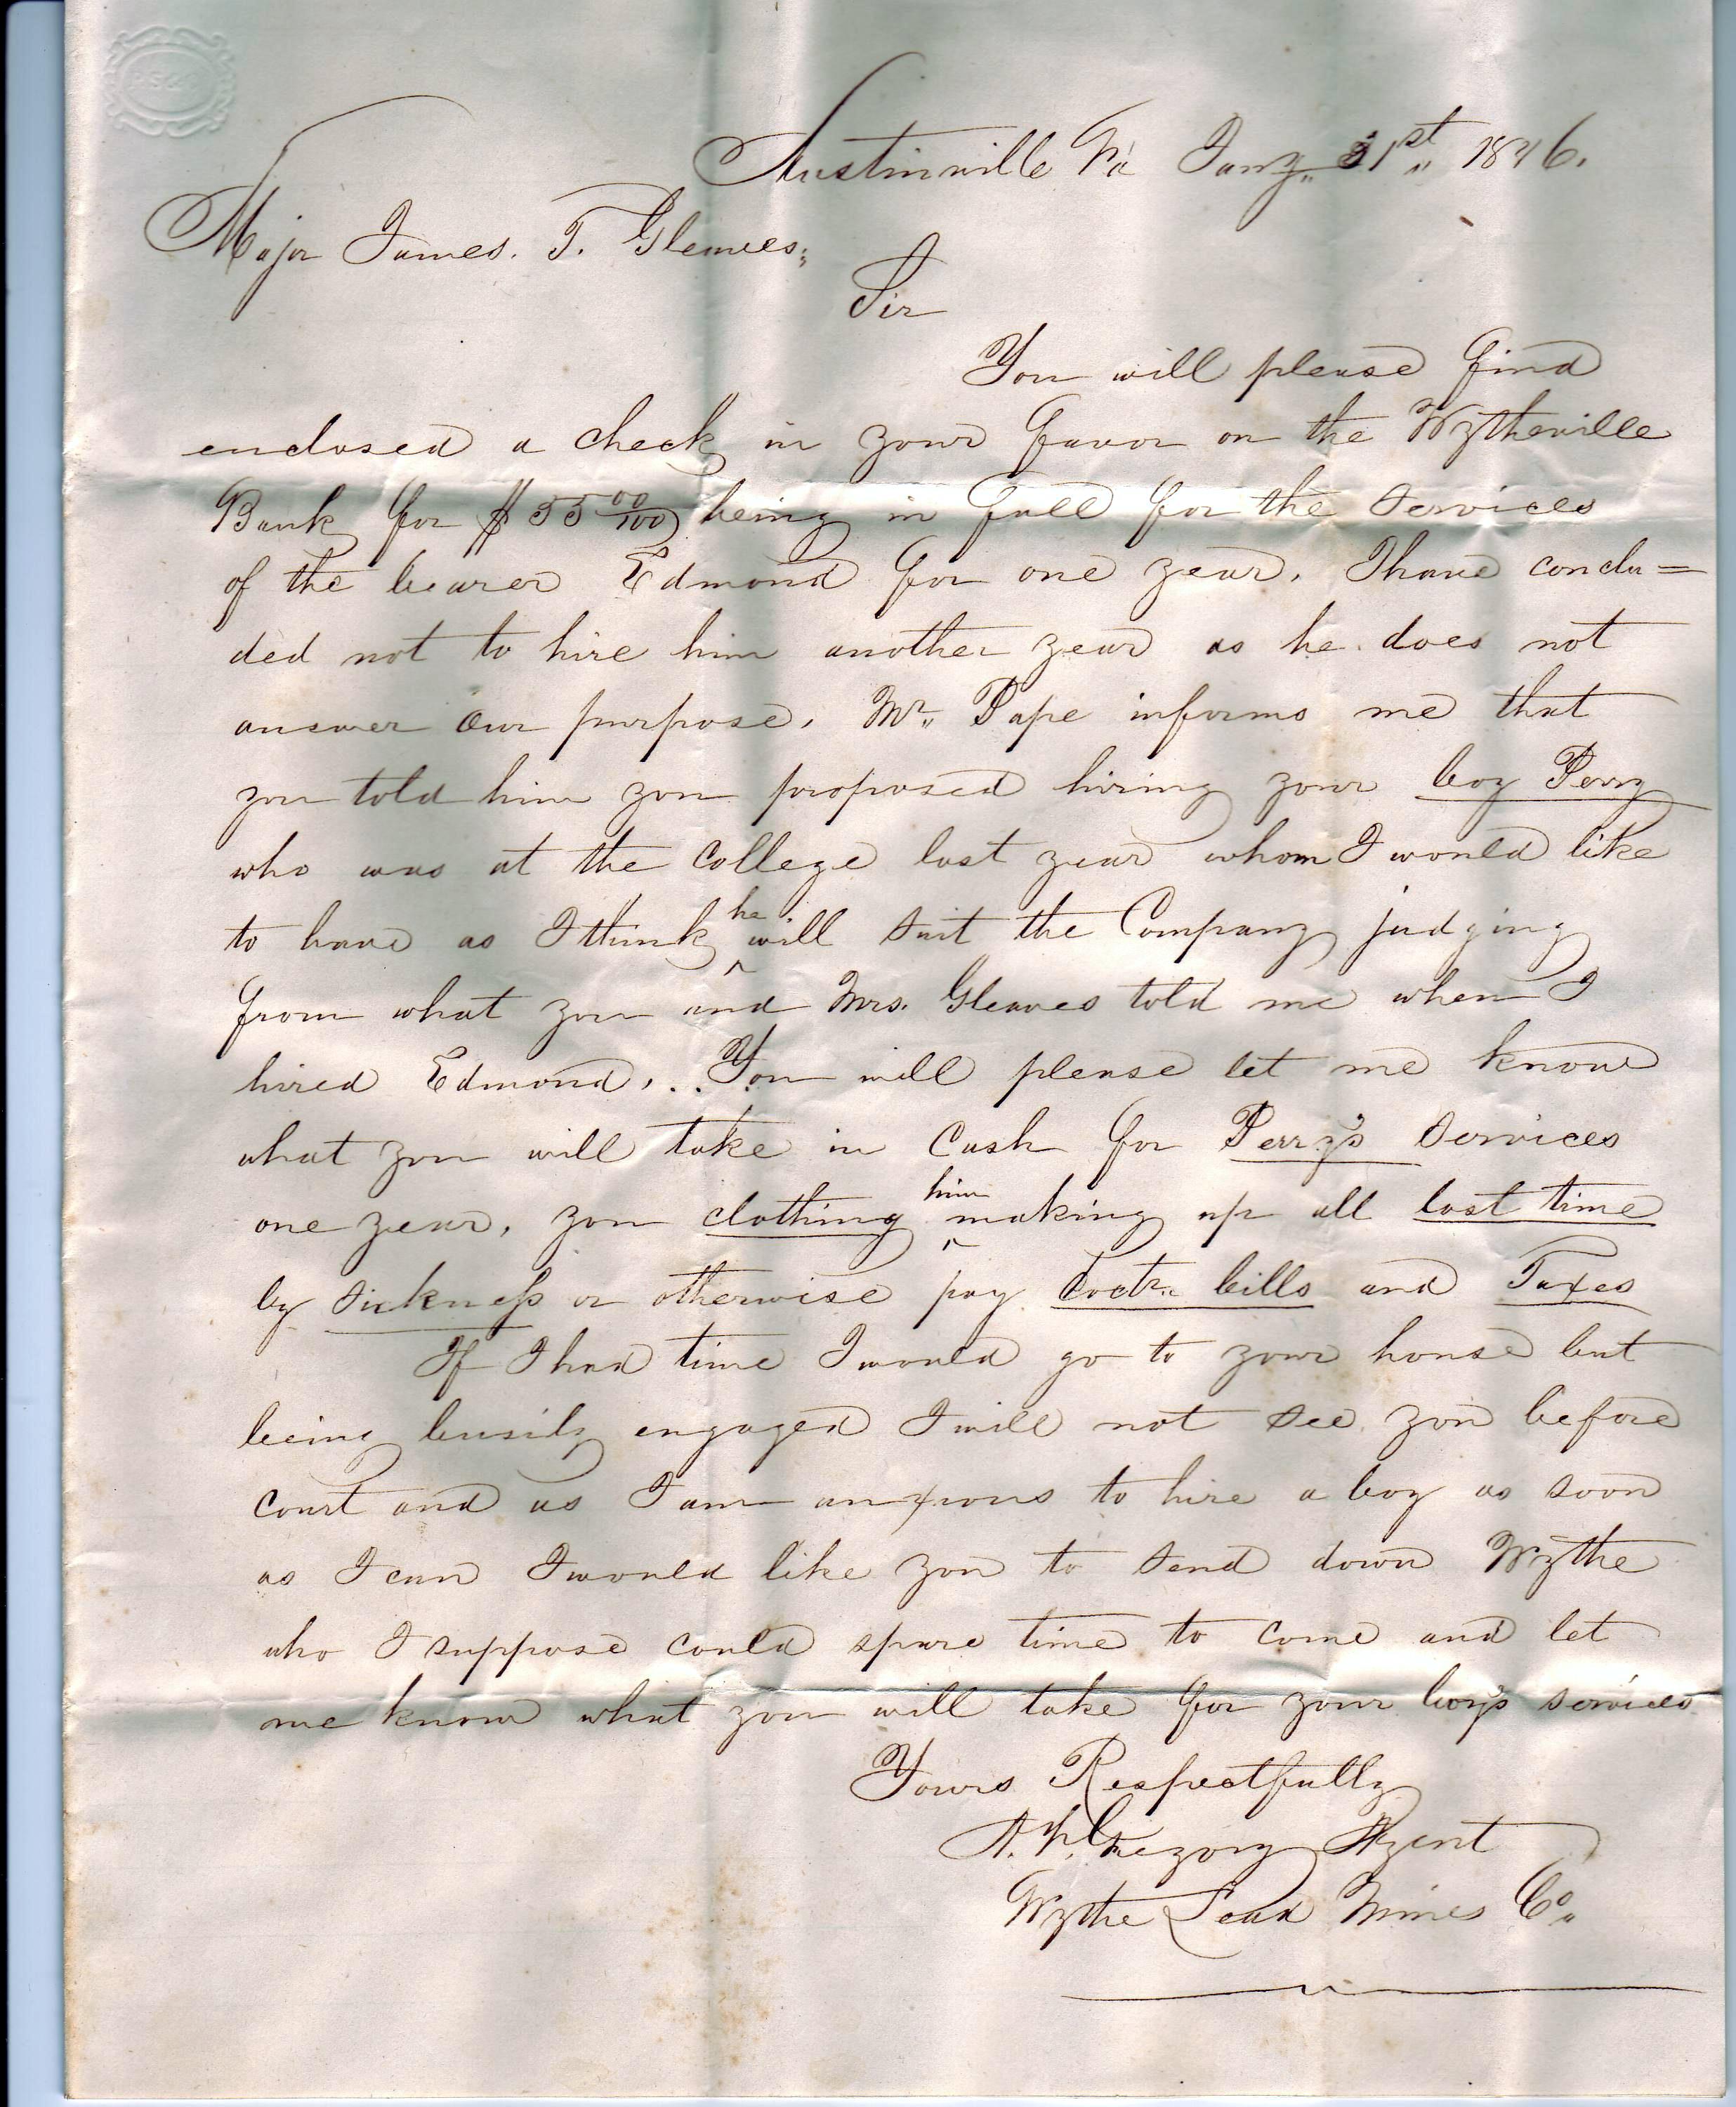 Austinville Va Jany 31st 1846.
Major James. T. Gleaves;
Sir
You will please find
enclosed a check in your favor on the Wytheville
Bank for $55 00/100 being in full for the services
of the bearer Edmond for one year. I have conclu=
ded not to hire him another year as he does not
answer our purpose. Mr. Pape informs me that
you told him you proposed hiring your boy Perry
who was at the College last year whom I would like
to have as I think he will suit the Company judging
from what you and Mrs. Gleaves told me when I
hired Edmond... You will please let me know
what you will take in Cash for Perry's services
one year, you clothing him making up all lost time
by sickness or otherwise pay Doctr. bills and Taxes
If I had time I would go to your house but
being busily engaged I will not see you before
court and as I am anxious to hire a boy as soon
as I can I would like you to send down Wythe
who I suppose could spare time to come and let
me know what you will take for your boy's services
Yours Respectfully
Gregory Agent
Wythe Lead Mines Co.